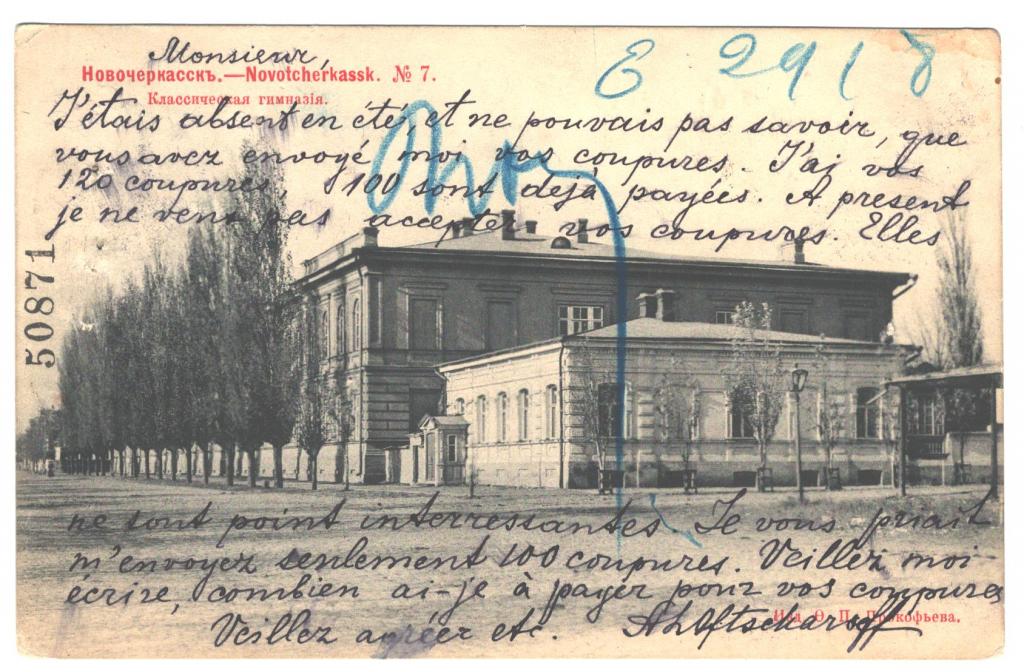 Monsieur,
Новочеркасскъ.—Novotcherkassk. № 7.
E 2918
Классическая гимназія.
J'étais absent en été, et ne pouvais pas savoir, que
vous avez envoyé moi vos coupures. J'ai vos
120 coupures, 100 sont dejà payées. A present
je ne veux pas accepter vos coupures. Elles
50871
ne sont point interressantes. Je vous priait
m'envoyez seulement 100 coupures. Veillez moi
écrire, combien ai-je à payer pour vos coupures
Изд. Ѳ. П. Прокофьева.
Veillez agréer etc.